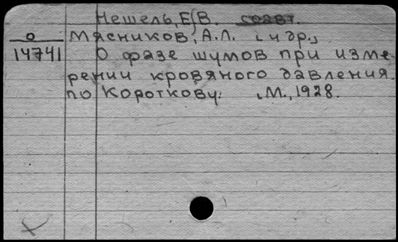 Нешель, Е.В. соавт.
о Мясников, А.Л. и др.,
14741 О фазе шумов при изме-
рении кровяного давления
по Короткову. М., 1928.